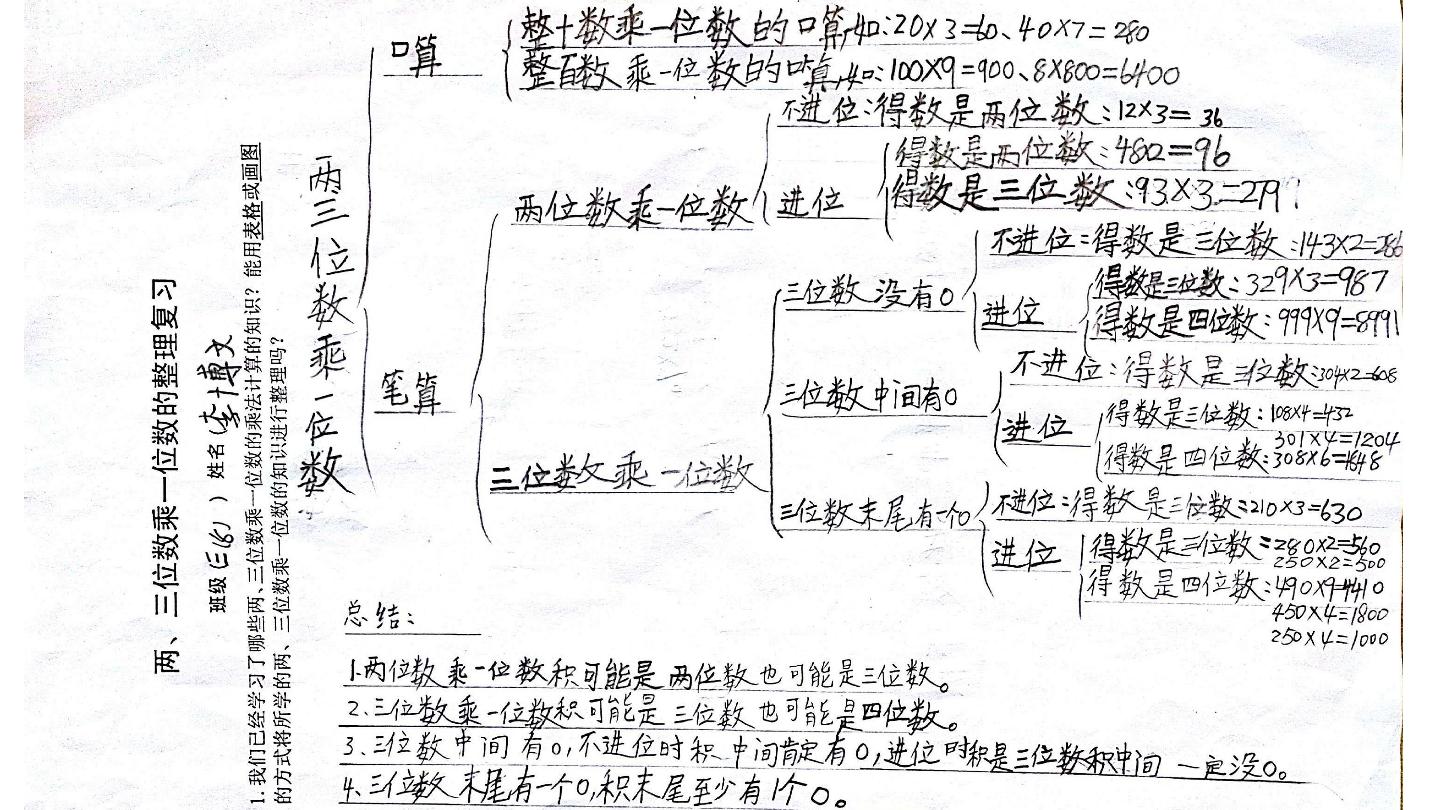 两、三位数乘一位数的整理复习
班级(三(6)) 姓名(李博文
1. 我们已经学习了哪些两、三位数乘一位数的乘法计算的知识？能用表格或画图
的方式将所学的两、三位数乘一位数的知识进行整理吗？
两三位数乘一位数
口算
整十数乘一位数的口算,如:20×3=60、40×7=280
整百数乘一位数的口算,如:100×9=900、8×800=6400
笔算
两位数乘一位数
不进位:得数是两位数:12×3=36
进位
得数是两位数:48×2=96
得数是三位数:93×3=279
三位数乘一位数
三位数没有0
不进位:得数是三位数:143×2=286
进位
得数是三位数:329×3=987
得数是四位数:999×9=8991
三位数中间有0
不进位:得数是三位数:304×2=608
进位
得数是三位数:108×4=432
301×4=1204
得数是四位数:308×6=1848
三位数末尾有一个0
不进位:得数是三位数:210×3=630
进位
得数是三位数:280×2=560
250×2=500
得数是四位数:490×9=4410
450×4=1800
250×4=1000
总结:
1.两位数乘一位数积可能是两位数也可能是三位数。
2、三位数乘一位数积可能是三位数也可能是四位数。
3、三位数中间有0,不进位时积中间肯定有0,进位时积是三位数积中间一定没0。
4、三位数末尾有一个0,积末尾至少有1个0。